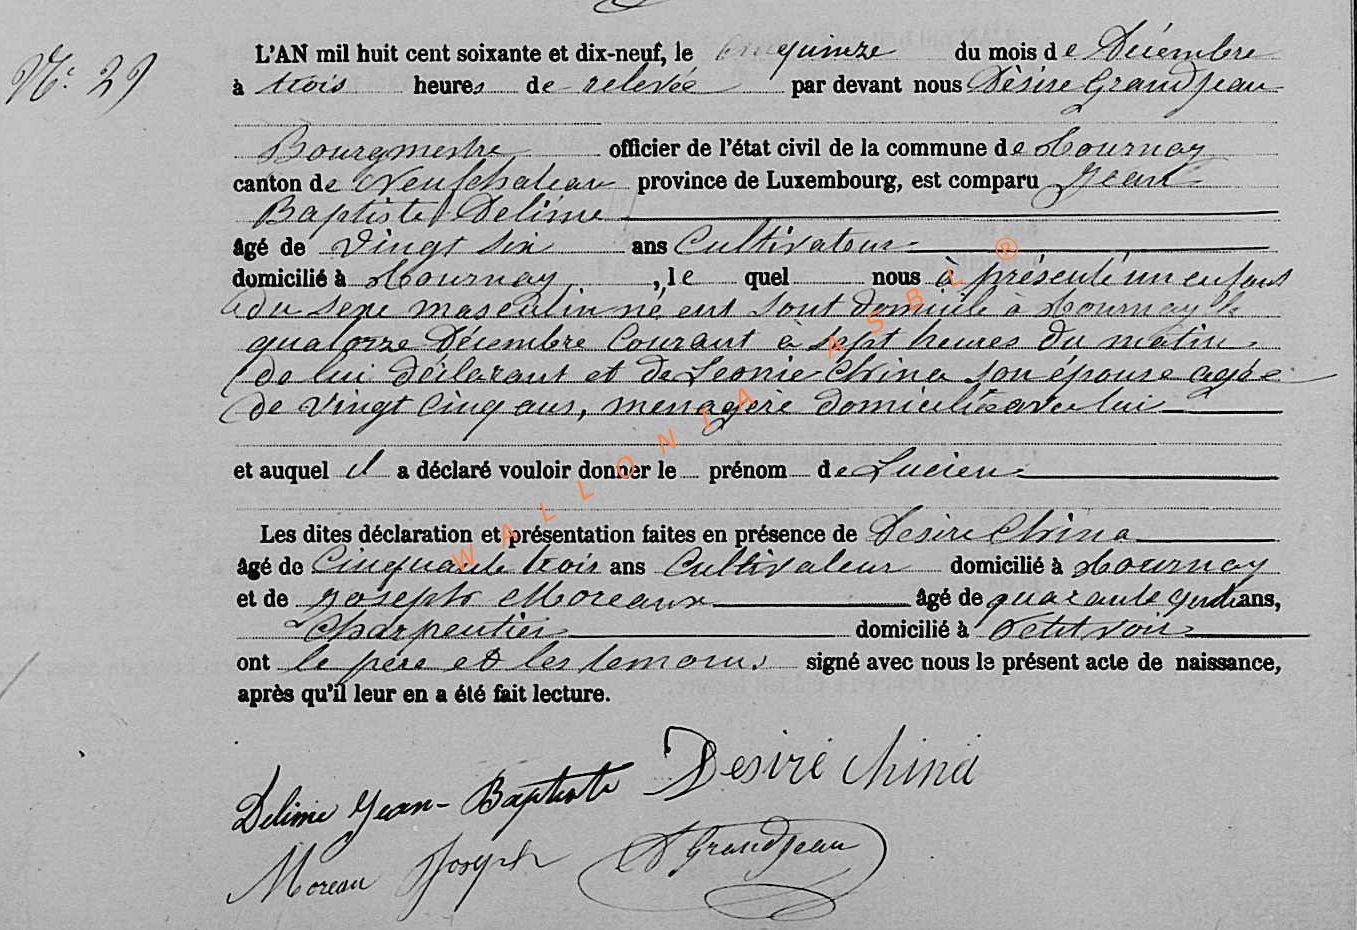 N° 29
L'AN mil huit cent soixante et dix-neuf, le quinze du mois de Décembre
à trois heures de relevée par devant nous Dèsire Grandjean
Bourgmestre officier de l'état civil de la commune de Tournay
canton de Neufchateau province de Luxembourg, est comparu Jean
Baptiste Delime
âgé de vingt six ans Cultivateur
domicilié à Tournay, le quel nous à présenté un enfant
du sexe masculin né en sont domicile à Tournay le
quatorze Décembre Courant à sept heures du matin
de lui déclarant et de Leonie China son épouse agée
de vingt cinq ans, menagère domiciliée avec lui
et auquel il a déclaré vouloir donner le prénom de Lucien
Les dites déclaration et présentation faites en présence de Desiré China
âgé de Cinquante trois ans Cultivateur domicilié à Tournay
et de Joseph Moreaux âgé de quarante ans,
Charpentier domicilié à Petitvoir
ont le père et les temoins signé avec nous le présent acte de naissance,
après qu'il leur en a été fait lecture.
Delime Jean-Baptiste Desiré China
Moreau Joseph D Grandjean
WALLONIA ASBL ®